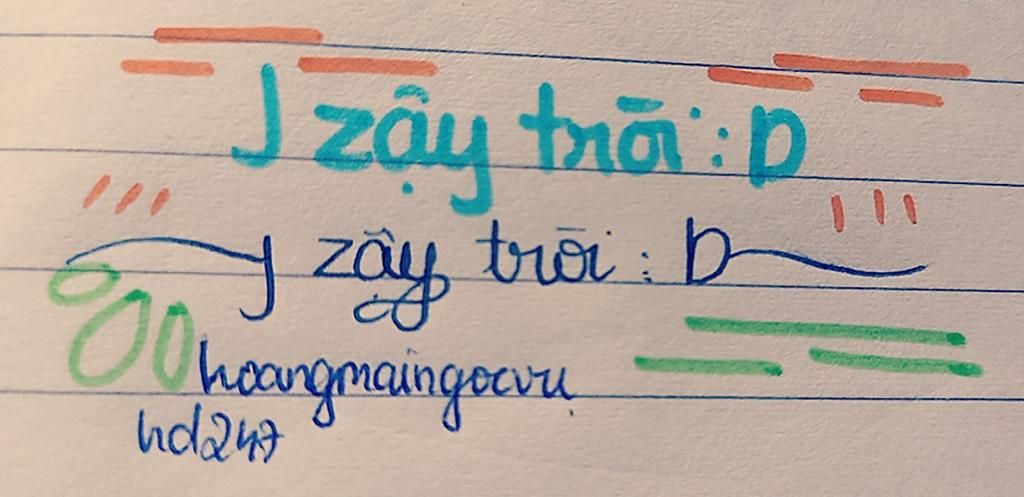 J zậy trời : D
J zậy trời : D
hoangmaingocvu
hd247